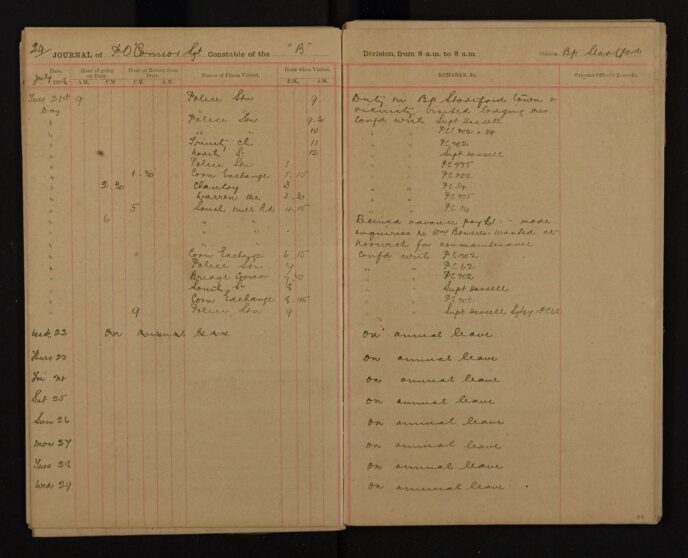 24 JOURNAL of O'Connor Sgt Constable of the "B" Division, from 8 a.m. to 8 a.m. Station, Bp Stortford
Date. Hour of going on Duty. Hour of Return from Duty. Names of Places Visited. Hour when Visited. REMARKS, &c. Superior Officer's Remarks.
July A.M. P.M. P.M. A.M. P.M. A.M.
Tues 21st 9 Police Stn 9 Duty in Bp Stortford town &
Day " " vicinity visited lodging
" Police Stn 9.30 Conf'd with Supt Hassell
" " " 10 " " PC 302 & 34
" Trinity Ch 11 " " PC 302
" North St 12 " " Supt Hassell
" Police Stn 1 " "
" 1.30 Corn Exchange 1.15 " "
" 2.30 Chantry 3 " " PC 34
" Warren 3.30 " "
" 5 South Mill Rd 4.15 " " PC 34
" 6 " " made
" " " enquiries re Wm wanted at
" " " Norwich for nonmaintenance
" Corn Exchange 6.15 Conf'd with PC 302
" Police Stn 7 " " PC 62
" Bridge 7.30 " " PC 302
" South St 8 " " Supt Hassell
" Corn Exchange 8.45 " " PC 302
" 9 Police Stn 9 " " Supt Hassell
Wed. 22 On annual leave On annual leave
Thurs 23 On annual leave
Fri 24 On annual leave
Sat 25 On annual leave
Sun 26 On annual leave
Mon 27 On annual leave
Tues 28 On annual leave
Wed 29 On annual leave